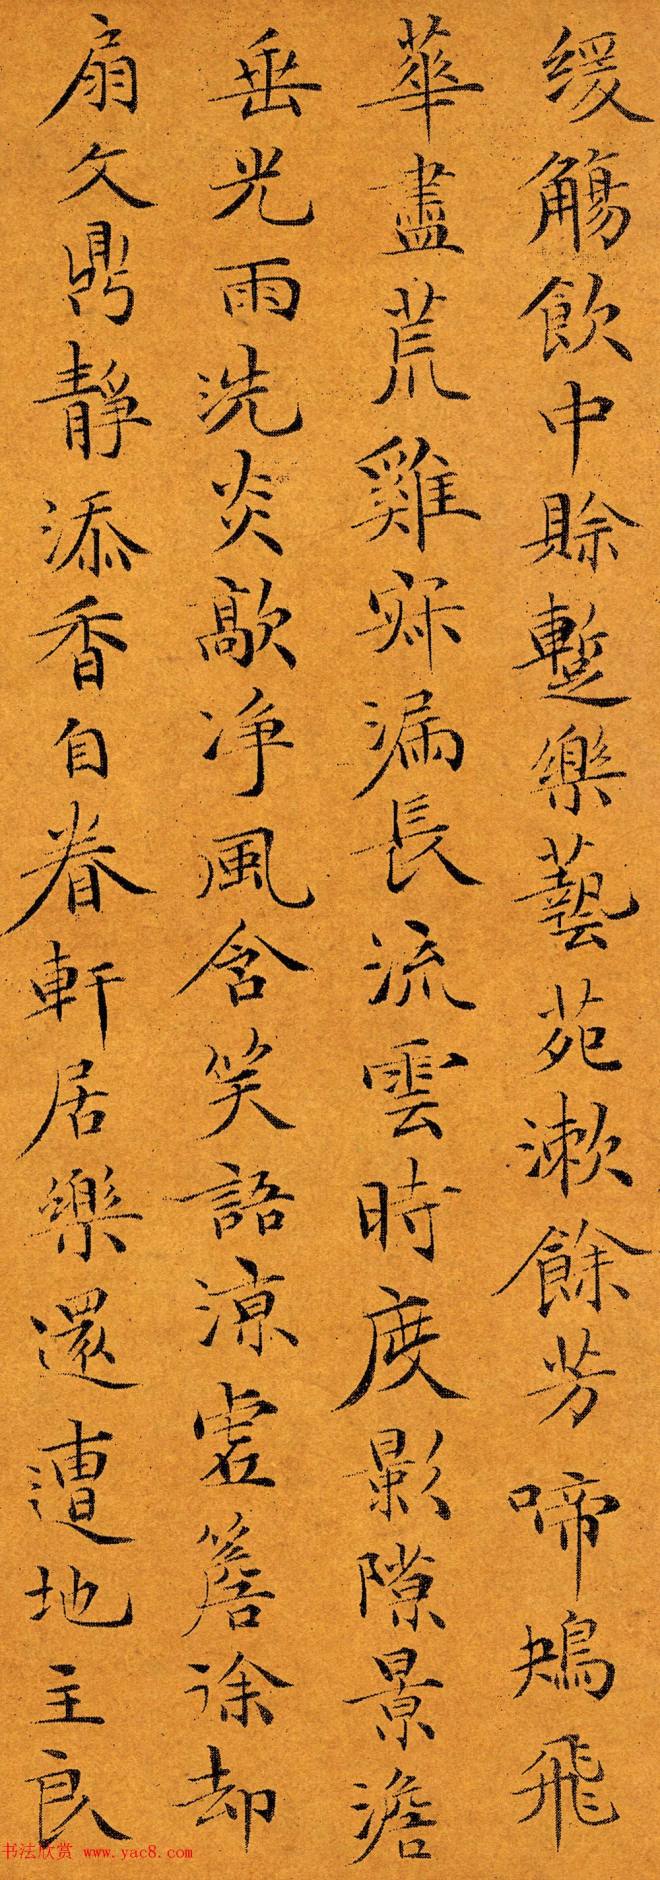 缓觴飲中賖蹔樂藝苑漱餘芳啼鴂飛
華盡荒雞寐漏長流雲時度影隙景澹
垂光雨洗炎歊净風含笑語涼虚簷徐却
扇文鼎靜添香自眷軒居樂還遭地主良
书法欣赏 www.yac8.com